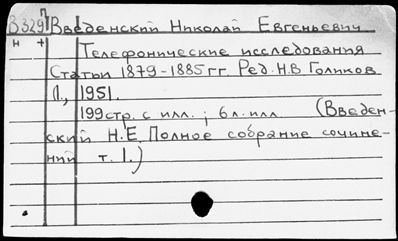 В329 Введенский Николай Евгеньевич
н +
Телефонические исследования
Статьи 1879-1885гг. Ред. Н.В Голиков
Л., 1951.
199стр. с илл. ; 6 л. илл (Введен-
ский Н.Е. Полное собрание сочине-
ний т. 1.)